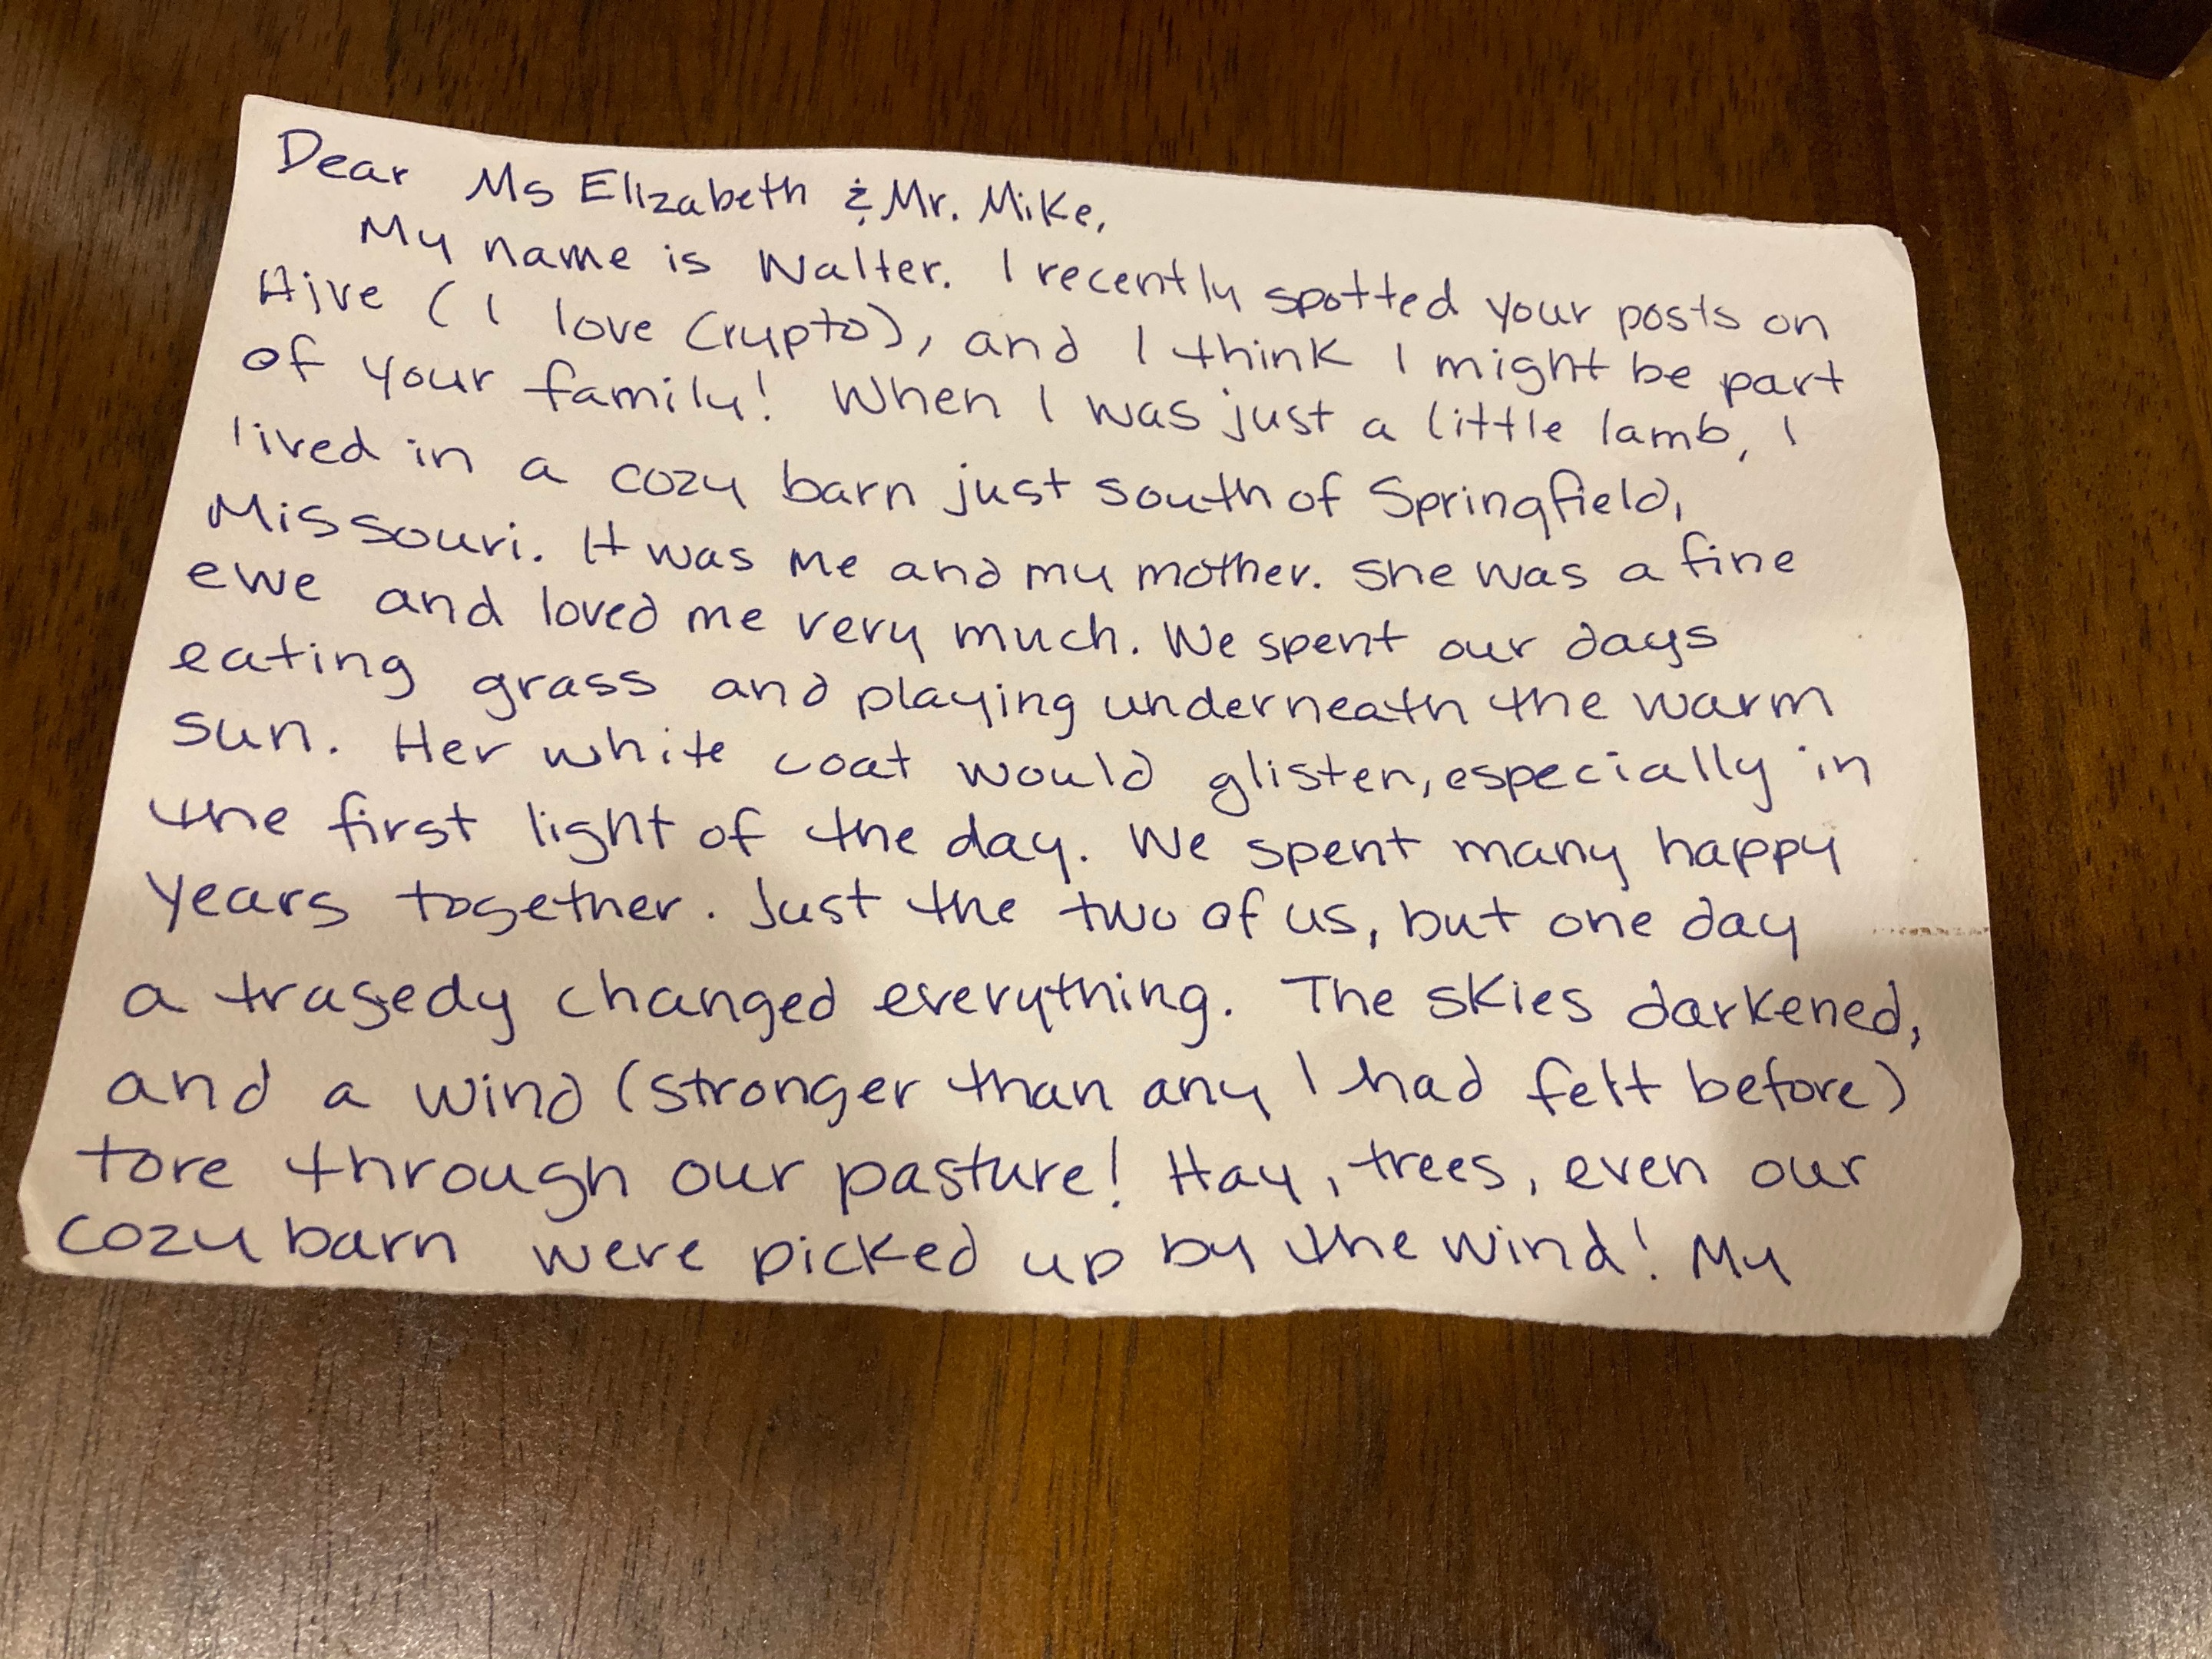 Dear Ms Elizabeth & Mr. Mike,
My name is Walter. I recently spotted your posts on
Hive (I love Crypto), and I think I might be part
of your family! When I was just a little lamb, I
lived in a cozy barn just south of Springfield,
Missouri. It was me and my mother. She was a fine
ewe and loved me very much. We spent our days
eating grass and playing underneath the warm
sun. Her white coat would glisten, especially in
the first light of the day. We spent many happy
years together. Just the two of us, but one day
a tragedy changed everything. The skies darkened,
and a wind (stronger than any I had felt before)
tore through our pasture! Hay, trees, even our
cozy barn were picked up by the wind! My